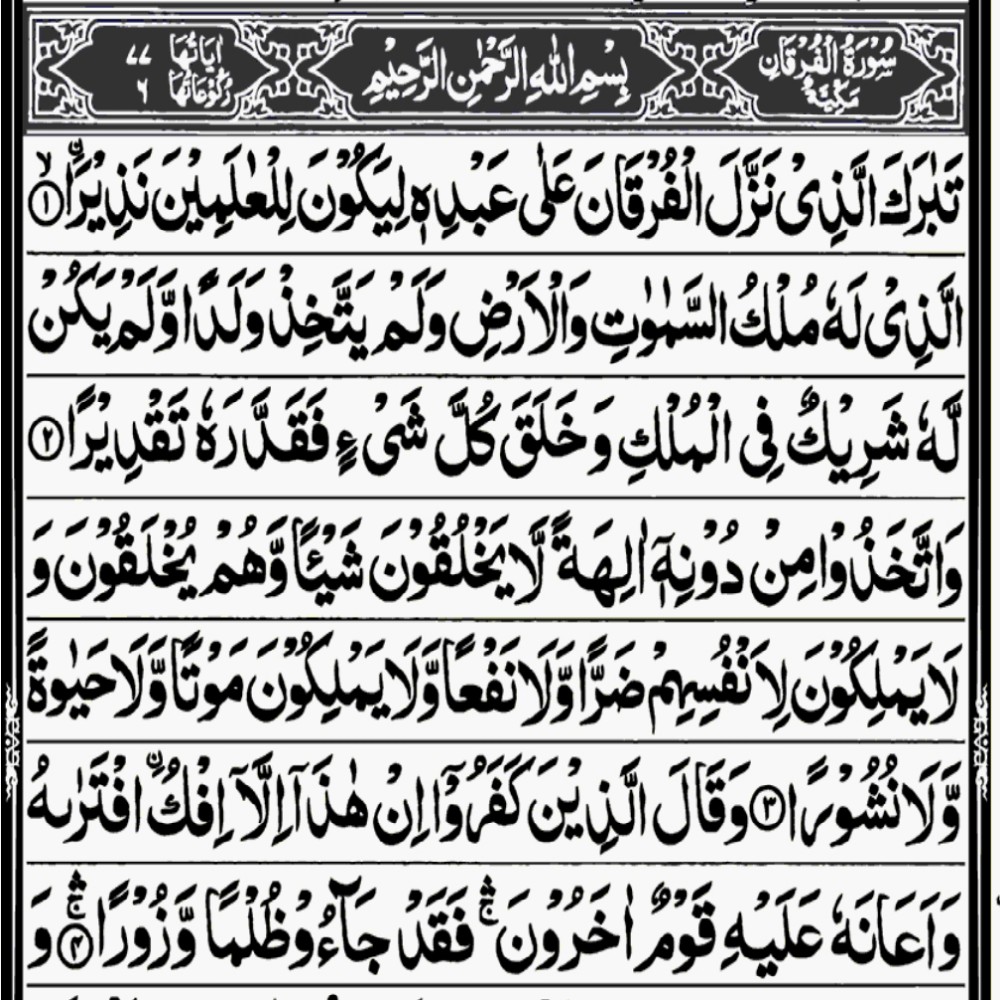 سُوْرَةُ الْفُرْقَانِ مَكِّيَّةٌ
بِسْمِ اللّٰهِ الرَّحْمٰنِ الرَّحِيْمِ
اٰيَاتُهَا ٧٧
رُكُوْعَاتُهَا ٦
تَبٰرَكَ الَّذِىْ نَزَّلَ الْفُرْقَانَ عَلٰى عَبْدِهٖ لِيَكُوْنَ لِلْعٰلَمِيْنَ نَذِيْرًا ۙ﴿١﴾
الَّذِىْ لَهٗ مُلْكُ السَّمٰوٰتِ وَالْاَرْضِ وَلَمْ يَتَّخِذْ وَلَدًا وَّلَمْ يَكُنْ
لَّهٗ شَرِيْكٌ فِى الْمُلْكِ وَخَلَقَ كُلَّ شَىْءٍ فَقَدَّرَهٗ تَقْدِيْرًا ﴿٢﴾
وَاتَّخَذُوْا مِنْ دُوْنِهٖٓ اٰلِهَةً لَّا يَخْلُقُوْنَ شَيْئًا وَّهُمْ يُخْلَقُوْنَ وَ
لَا يَمْلِكُوْنَ لِاَنْفُسِهِمْ ضَرًّا وَّلَا نَفْعًا وَّلَا يَمْلِكُوْنَ مَوْتًا وَّلَا حَيٰوةً
وَّلَا نُشُوْرًا ﴿٣﴾ وَقَالَ الَّذِيْنَ كَفَرُوْٓا اِنْ هٰذَآ اِلَّآ اِفْكٌ ۨافْتَرٰىهُ
وَاَعَانَهٗ عَلَيْهِ قَوْمٌ اٰخَرُوْنَ ۛۚ فَقَدْ جَآءُوْ ظُلْمًا وَّزُوْرًا ۛۚ﴿٤﴾ وَ